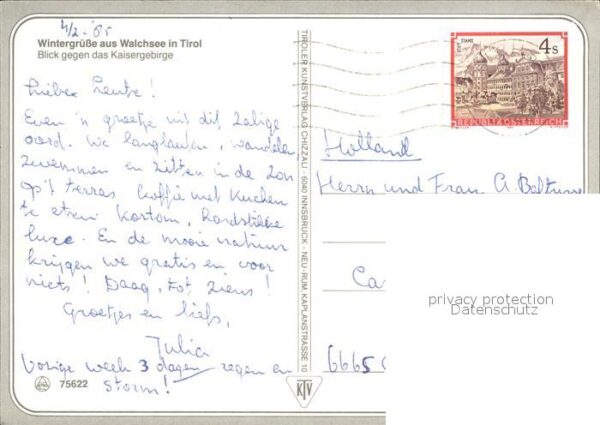 4/2-85
Wintergrüße aus Walchsee in Tirol
Blick gegen das Kaisergebirge
Lieber Leute!
Even 'n groetje uit dit zalige
oord. We langlaufen, wandelen
zwemmen en zitten in de zon
op 't terras koffie met Kuchen
te eten! Kortom,
luxe. En de mooie natuur
krijgen we gratis en voor
niets! Daag, tot ziens!
Groetjes en liefs,
Julia
Vorige week 3 dagen regen en
storm!
75622
TIROLER KUNSTVERLAG CHIZZALI · 6040 INNSBRUCK - NEU-RUM, KAPLANSTRASSE 10
KTV
STIFT STAMS
4 S
REPUBLIK ÖSTERREICH
Holland
Herrn und Frau A.
Ca
6665
privacy protection
Datenschutz